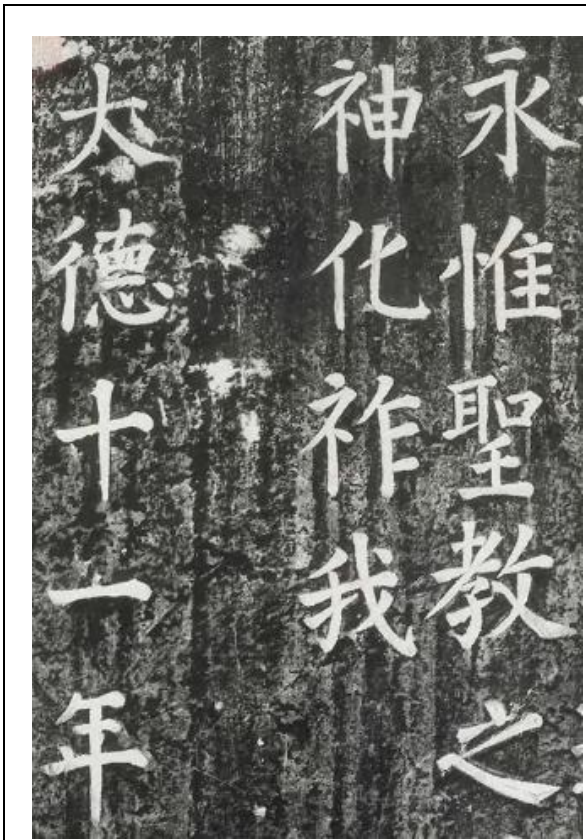 永惟聖教之
神化祚我
大德十一年